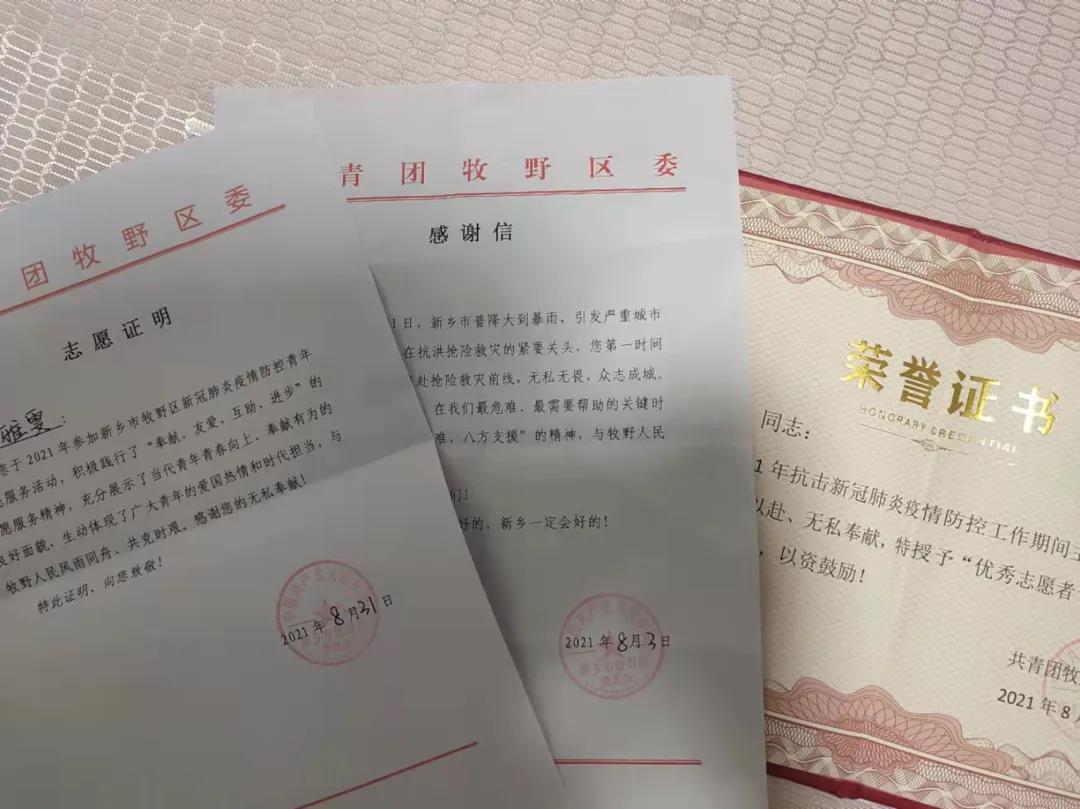 团牧野区委
志愿证明
雅雯：
您于2021年参加新乡市牧野区新冠肺炎疫情防控青年
愿服务活动，积极践行了“奉献、友爱、互助、进步”的
愿服务精神，充分展示了当代青年青春向上、奉献有为的
良好面貌，生动体现了广大青年的爱国热情和时代担当，与
牧野人民风雨同舟、共克时艰。感谢您的无私奉献！
特此证明，向您致敬！
2021年8月31日
青团牧野区委
感谢信
1日，新乡市普降大到暴雨，引发严重城市
在抗洪抢险救灾的紧要关头，您第一时间
赴抢险救灾前线，无私无畏，众志成城。
在我们最危难、最需要帮助的关键时
难，八方支援”的精神，与牧野人民
们！
好的，新乡一定会好的！
2021年8月3日
荣誉证书
HONORARY CREDENTIAL
同志：
1年抗击新冠肺炎疫情防控工作期间主
以赴、无私奉献，特授予“优秀志愿者
，以资鼓励！
共青团牧
2021年8